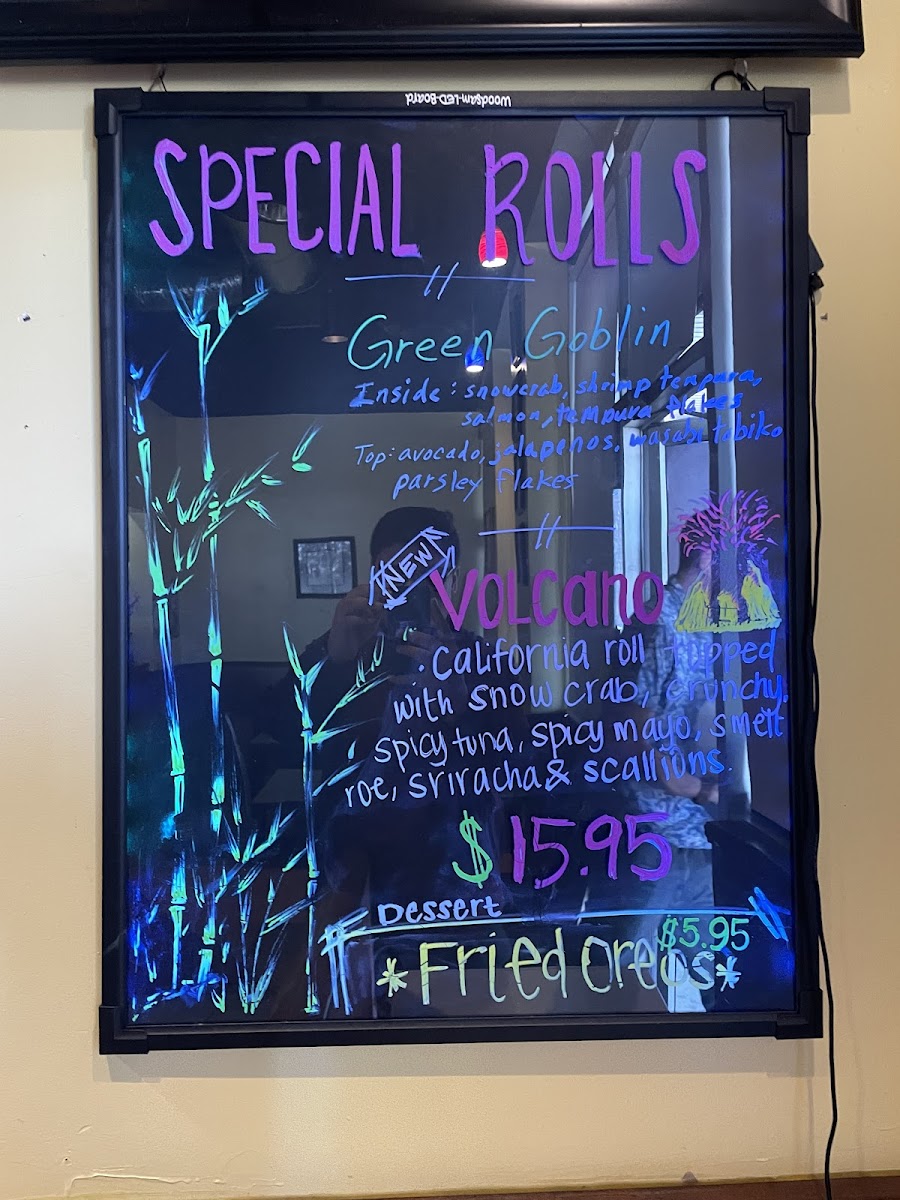 Woodsam-LED-Board
SPECIAL ROLLS
Green Goblin
Inside: snowcrab, shrimp tempura,
salmon, tempura flakes
Top: avocado, jalapenos, wasabi tobiko
parsley flakes
NEW
VOLCANO
• California roll topped
with snow crab, crunchy,
spicy tuna, spicy mayo, smelt
roe, sriracha & scallions.
$15.95
Dessert
$5.95
*Fried oreos*